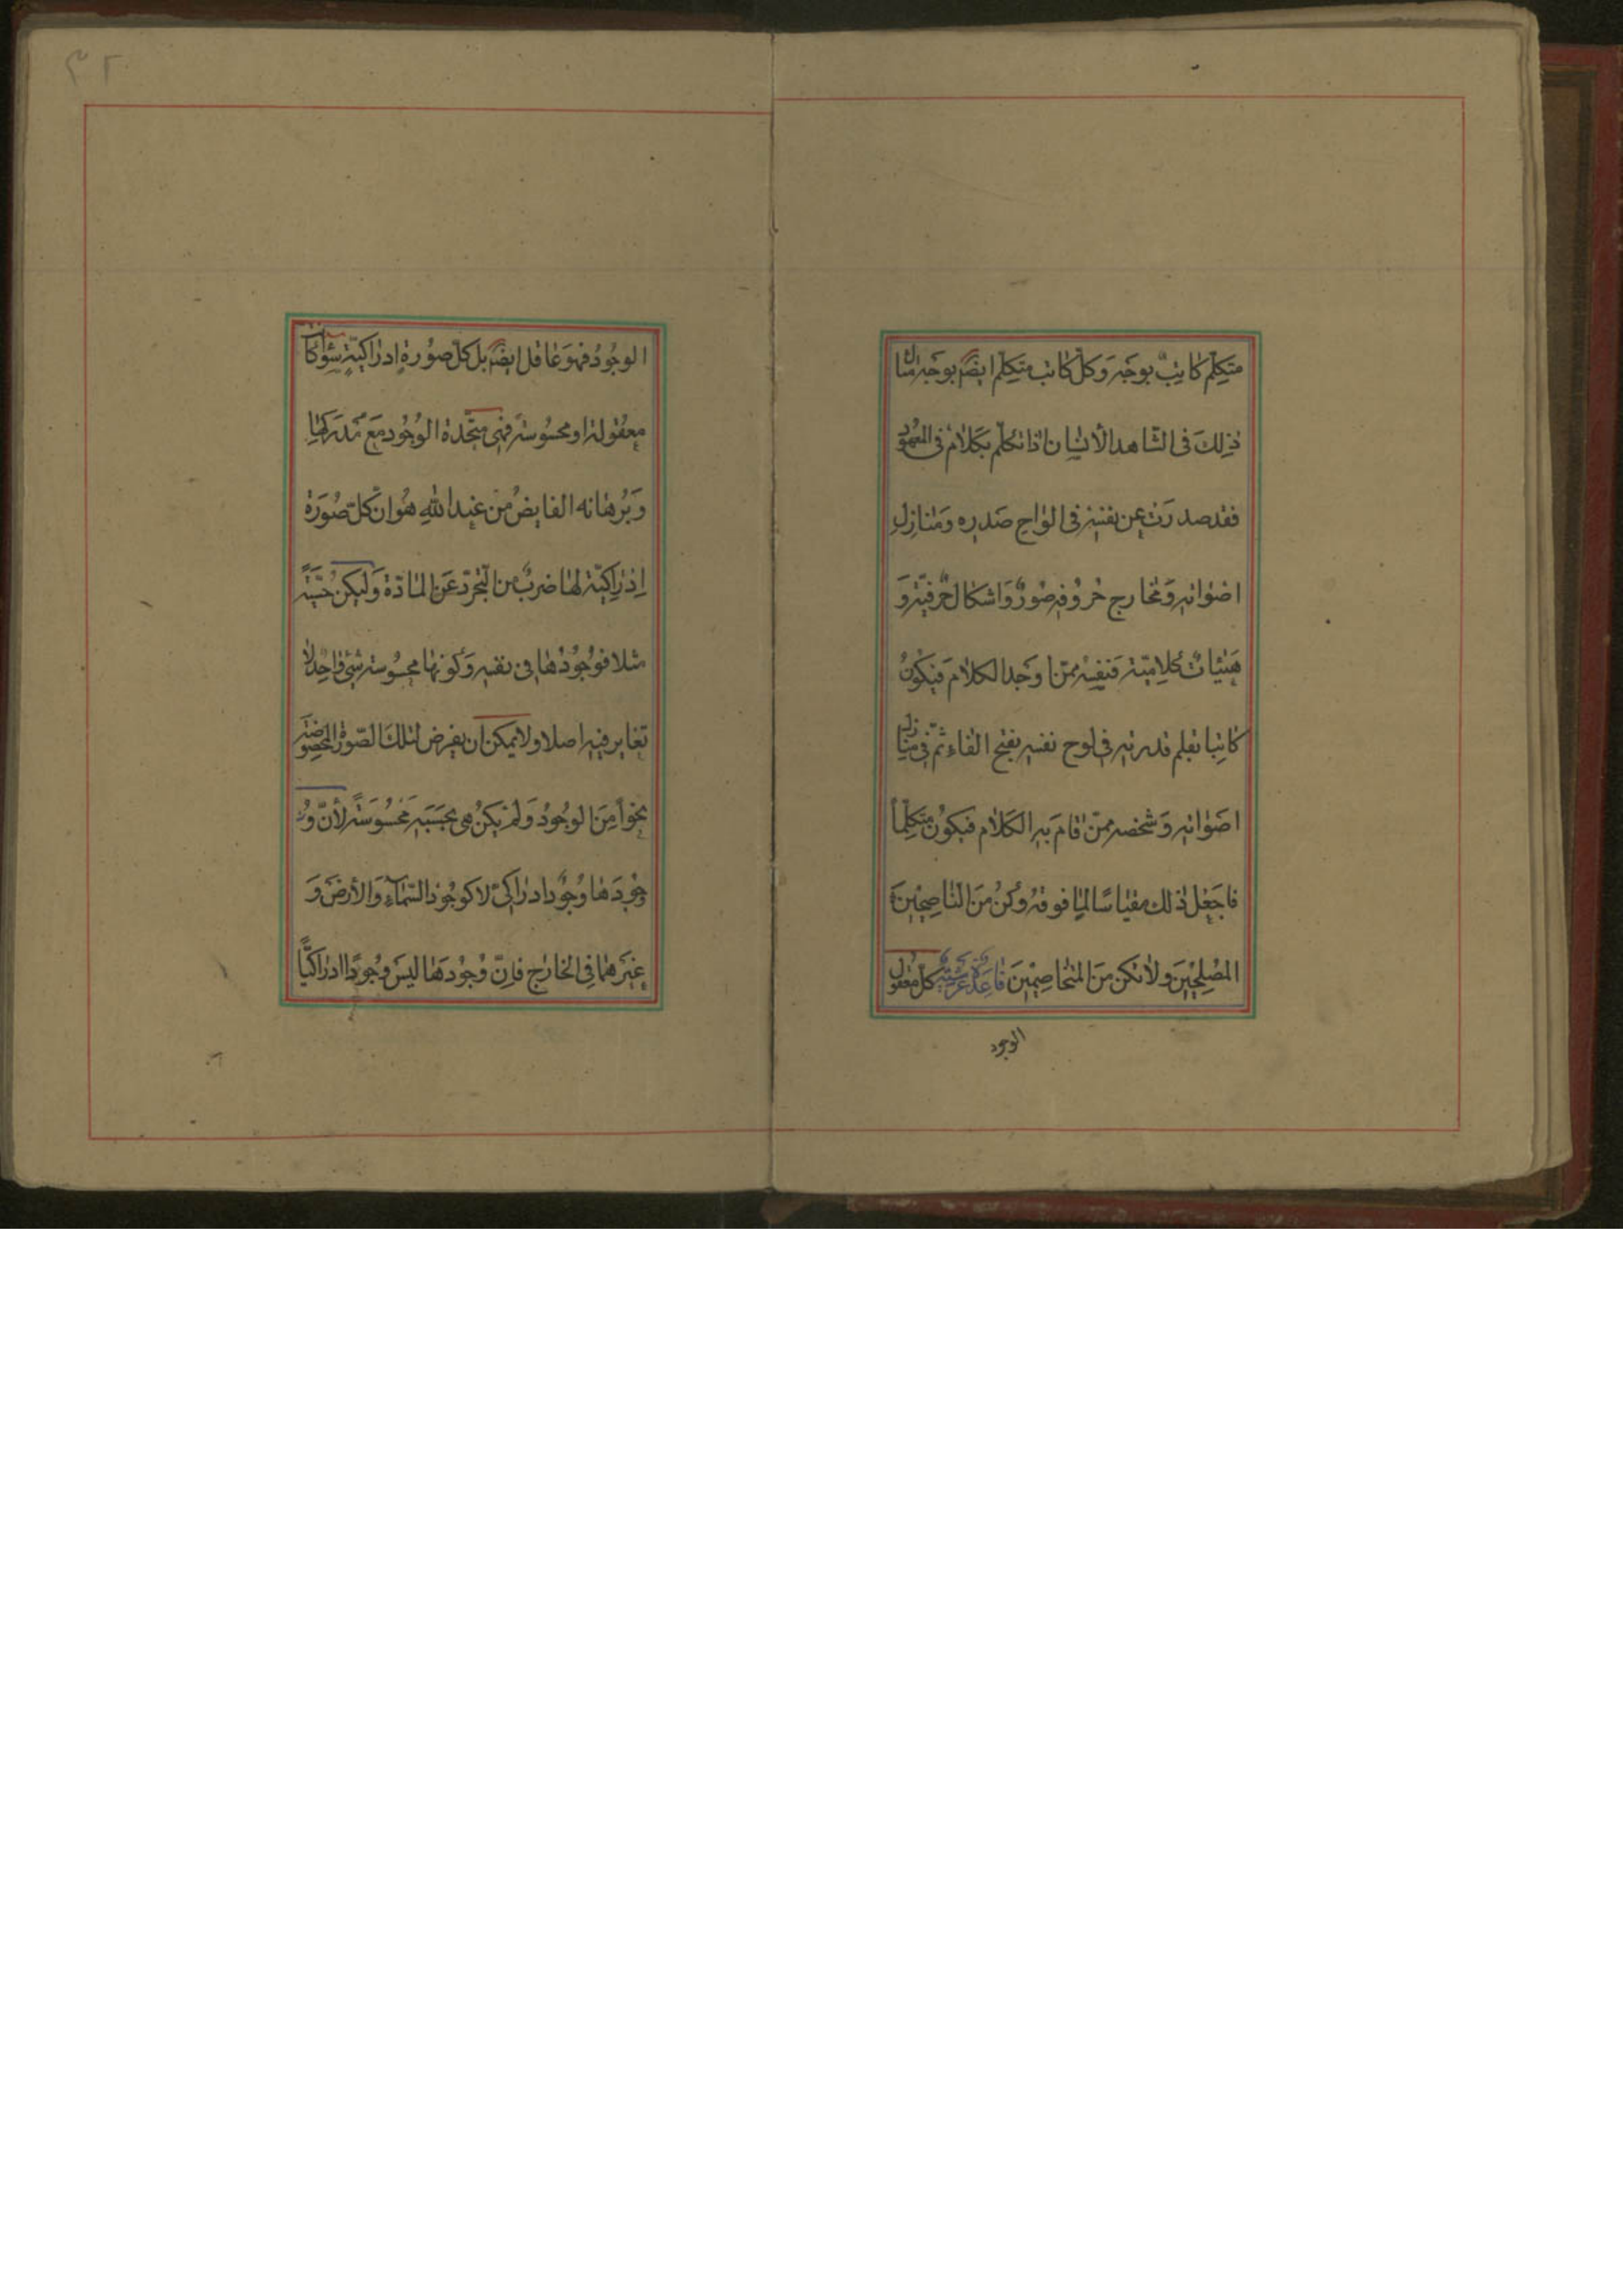 متكلّم كاتِبٌ بوجَهٍ وَكلّ كاتب متكلّم ايضًا بوجَهٍ مثال
ذٰلِكَ فى الشّاهد الأنسان اذا تكلّم بكَلامٍ فى المعهود
فقد صدرَت عن نفسِه فى الواح صَدره وَمنازِلِ
اصْواتِه وَمخارج حُرُوفِه صُوَرٌ وَاشكال حَرفيّة وَ
هَيئاتٌ كلامِيّة فَنفسُه ممّن اوجَد الكلامَ فيَكونُ
كاتِبا بقلم قدرتِه فى لوح نفسِه بفتح الفاء ثمّ فى منازل
اصَواتِه وَشخصه ممّن قامَ بِه الكَلام فيكونُ متكلِّماً
فاجعَل ذلك مقياسًا لمِا فوقهُ وُكنْ منَ النّاصِحينَ
المُصْلِحيْنَ وَلا تكن منَ المتخاصِميْنَ قاعِدَة عَرشيّة كلّ معقول
الوجود
٣٢
الوجُودُ فهوَ عاقل ايضًا بل كلّ صوُرةٍ ادراكيّةٍ سَواء كانت
معقولة او محسُوسة فهىَ متّحدة الوُجُود مَعَ مُدرَكِها
وَبُرهانه الفايضُ من عِند اللهِ هوُ انّ كلّ صُوَرة
اِدراكِيّة لها ضربٌ من التّجرّد عَن المادّة وَليكن حسّيّةً
مثلا فوُجُوْدُها فى نفسِه وَكونها محسُوسة شئ واحِد لا
تغاير فيه اصلا ولا يمكن ان يفرض لتلكَ الصّورة المخصوصة
نحواً مِنَ الوجُودِ وَلمْ يَكنْ هى بحَسَبِه مَحْسُوسَةً لأنّ وُ
جُودَها وُجُودٌ ادراكىّ لا كوجُود السّماَءِ وَالأرضِ وَ
غيَرهمَا فِى الخارِج فاِنّ وُجُوْدَها ليسَ وجُودًا ادراكيّاً